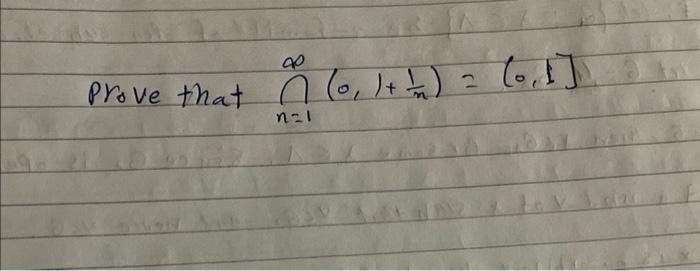 Prove that ∞⋂n=1 (0, 1+ 1/n) = (0, 1]